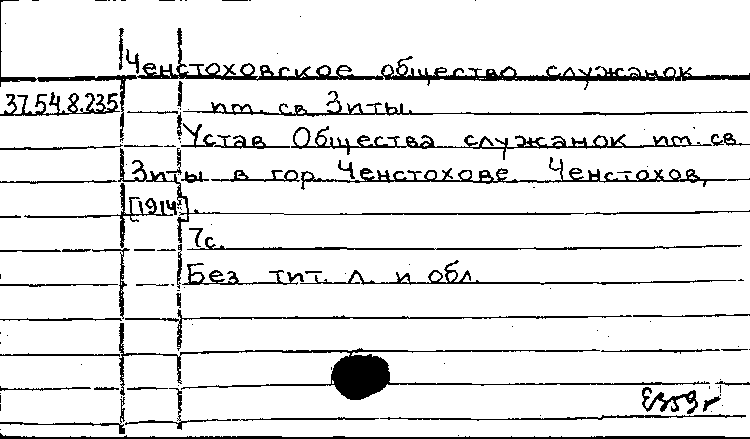 Ченстоховское общество служанок
37.54.8.235 пт. св Зиты.
Устав Общества служанок пт. св.
Зиты в гор. Ченстохове. Ченстохов,
[1914].
7с.
Без тит. л. и обл.